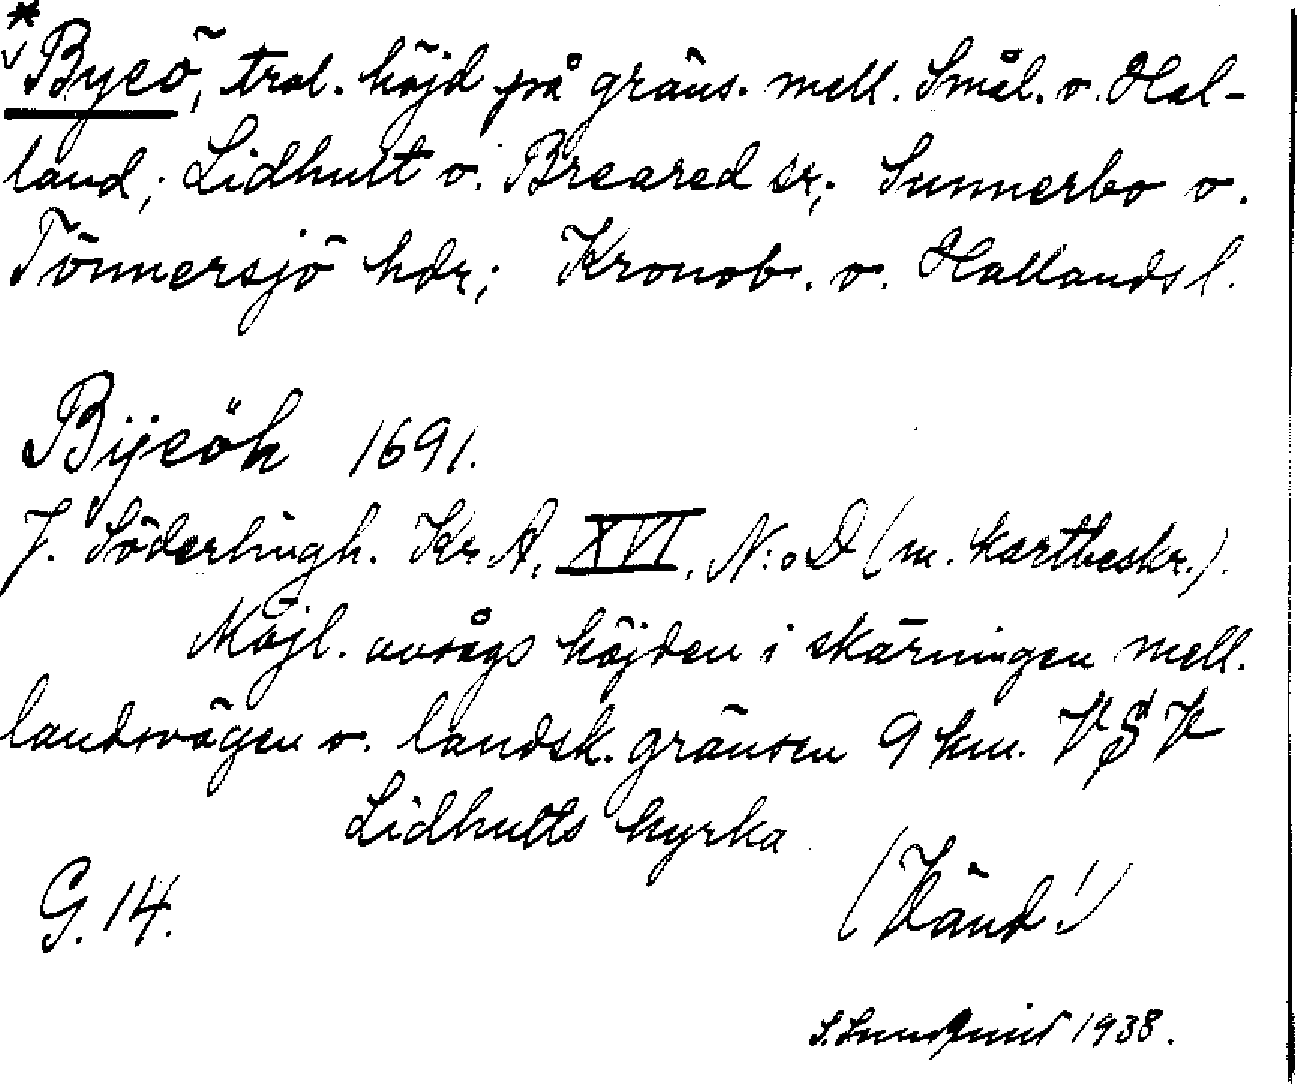 *
v Byeö, trol. höjd på gräns. mell. Smål. o. Hal-
land; Lidhult o. Breared sr; Sunnerbo o.
Tönnersjö hdr; Kronob. o. Hallands l.
Bijeöh 1691.
J. Söderlingh. Kr. A. XVI, N:o D (m. kartbeskr.).
Möjl. avsågs höjden i skärningen mell.
landsvägen o. landsk. gränsen 9 km. VSV
Lidhults kyrka
(Vänd!)
G. 14.
S. Sundqvist 1938.